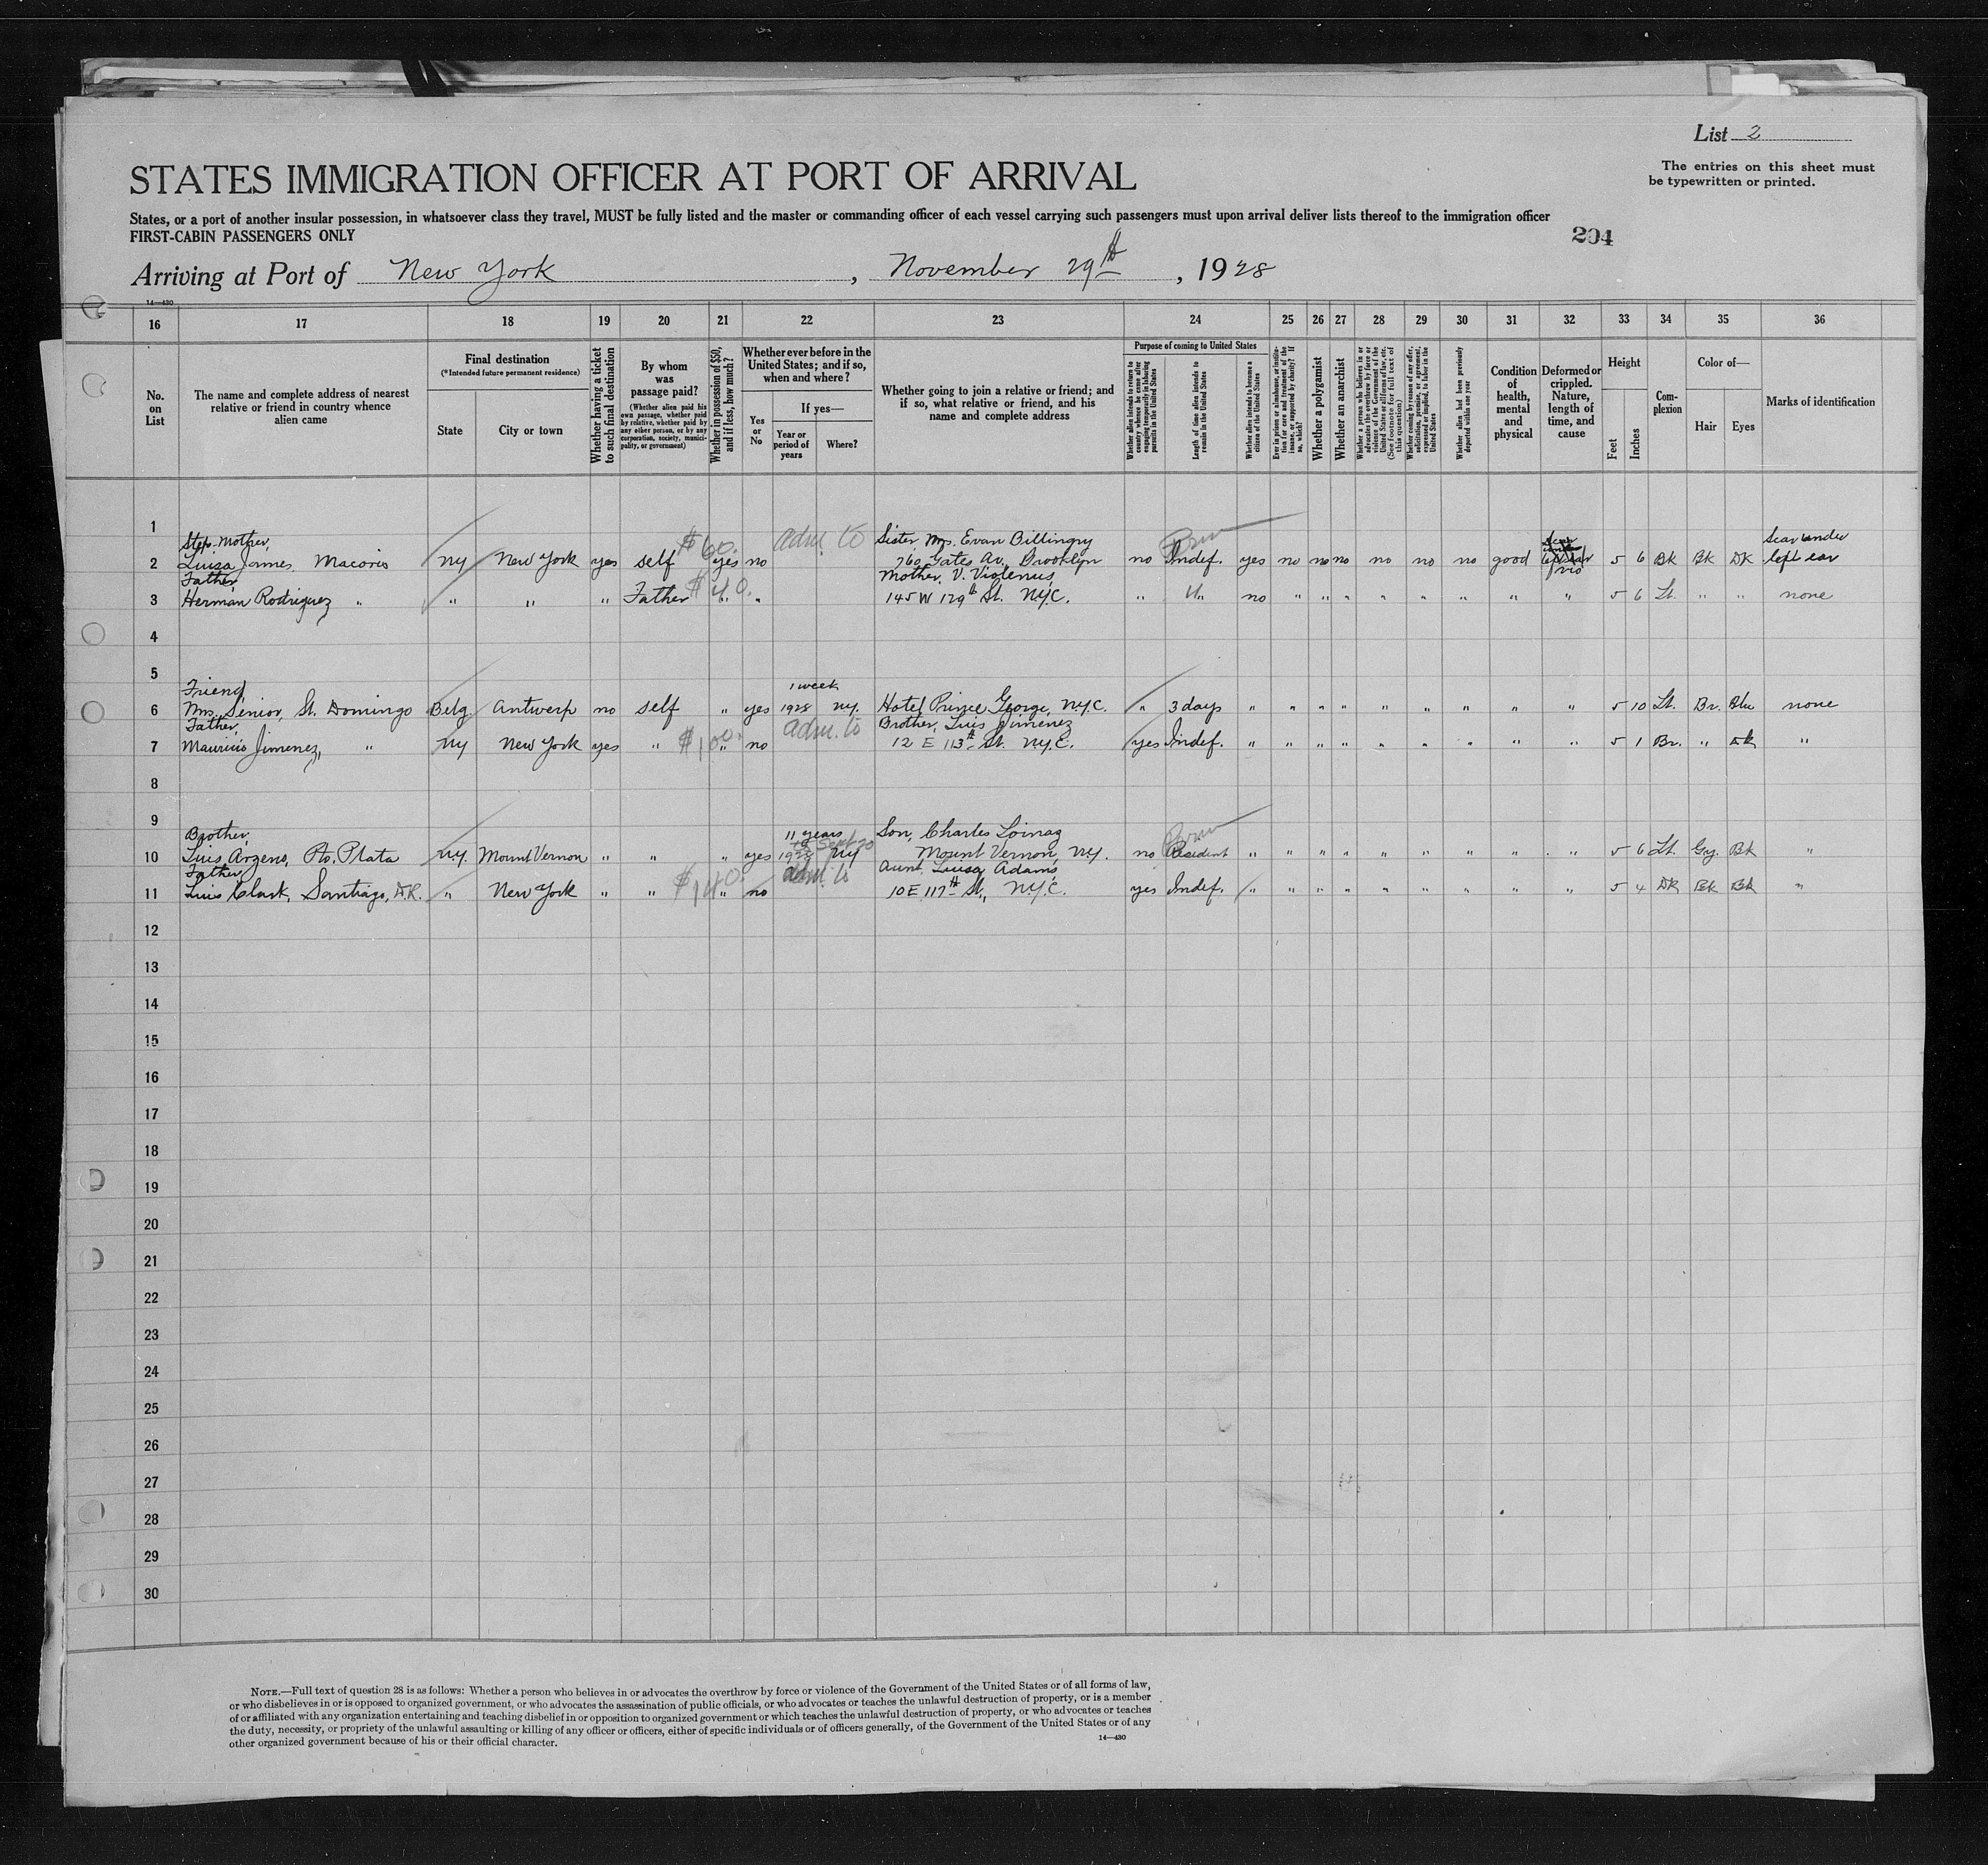 List 2
The entries on this sheet must
be typewritten or printed.
STATES IMMIGRATION OFFICER AT PORT OF ARRIVAL
States, or a port of another insular possession, in whatsoever class they travel, MUST be fully listed and the master or commanding officer of each vessel carrying such passengers must upon arrival deliver lists thereof to the immigration officer
FIRST-CABIN PASSENGERS ONLY
204
Arriving at Port of New York, November 29th, 1928
14—430
16 17 18 19 20 21 22 23 24 25 26 27 28 29 30 31 32 33 34 35 36
No. on List
The name and complete address of nearest relative or friend in country whence alien came
Final destination
(*Intended future permanent residence)
State
City or town
Whether having a ticket to such final destination
By whom was passage paid?
(Whether alien paid his own passage, whether paid by relative, whether paid by any other person, or by any corporation, society, municipality, or government)
Whether in possession of $50, and if less, how much?
Whether ever before in the United States; and if so, when and where?
Yes or No
If yes—
Year or period of years
Where?
Whether going to join a relative or friend; and if so, what relative or friend, and his name and complete address
Purpose of coming to United States
Whether alien intends to return to country whence he came after engaging temporarily in laboring pursuits in the United States
Length of time alien intends to remain in the United States
Whether alien intends to become a citizen of the United States
Ever in prison or almshouse, or institution for care and treatment of the insane, or supported by charity? If so, which?
Whether a polygamist
Whether an anarchist
Whether a person who believes in or advocates the overthrow by force or violence of the Government of the United States or all forms of law, etc. (See footnote for full text of this question)
Whether coming by reason of any offer, solicitation, promise, or agreement, expressed or implied, to labor in the United States
Whether alien had been previously deported within one year
Condition of health, mental and physical
Deformed or crippled. Nature, length of time, and cause
Height
Feet
Inches
Complexion
Color of—
Hair
Eyes
Marks of identification
1
Step-Mother, $60. adm. to Sister Mrs. Evan Billingny Scar under
2 Luisa James, Macoris NY New York yes self yes no 760 Gates Av., Brooklyn no Indef. yes no no no no no no good 5 6 Bk Bk DK left ear
Father $40. Mother, V. Violenus
3 Herman Rodriguez " " " " Father " " 145 W 129th St. N.Y.C. " " no " " " " " " " " 5 6 Lt. " " none
4
5
Friend, 1 week
6 Mrs. Senior, St. Domingo Belg. Antwerp no self " yes 1928 NY. Hotel Prince George, N.Y.C. " 3 days " " " " " " " " " 5 10 Lt. Br. Blu none
Father, $100. adm. to Brother, Luis Jimenez
7 Mauricio Jimenez, " NY New York yes " " no 12 E 113th St. N.Y.C. yes Indef. " " " " " " " " " 5 1 Br. " DK "
8
9
Brother, 11 years Son, Charles Loinaz
10 Luis Argeno, Pto. Plata N.Y. Mount Vernon " " " yes 1928 NY Mount Vernon, N.Y. no Resident " " " " " " " " " 5 6 Lt. Gry. Bk "
Father $140. adm. to Aunt, Luisa Adams
11 Luis Clark, Santiago, D.R. " New York " " " no 10 E 117th St., N.Y.C. yes Indef. " " " " " " " " " 5 4 DK Bk Bk "
12
13
14
15
16
17
18
19
20
21
22
23
24
25
26
27
28
29
30
NOTE.—Full text of question 28 is as follows: Whether a person who believes in or advocates the overthrow by force or violence of the Government of the United States or of all forms of law,
or who disbelieves in or is opposed to organized government, or who advocates the assassination of public officials, or who advocates or teaches the unlawful destruction of property, or is a member
of or affiliated with any organization entertaining and teaching disbelief in or opposition to organized government or which teaches the unlawful destruction of property, or who advocates or teaches
the duty, necessity, or propriety of the unlawful assaulting or killing of any officer or officers, either of specific individuals or of officers generally, of the Government of the United States or of any
other organized government because of his or their official character.
14—430